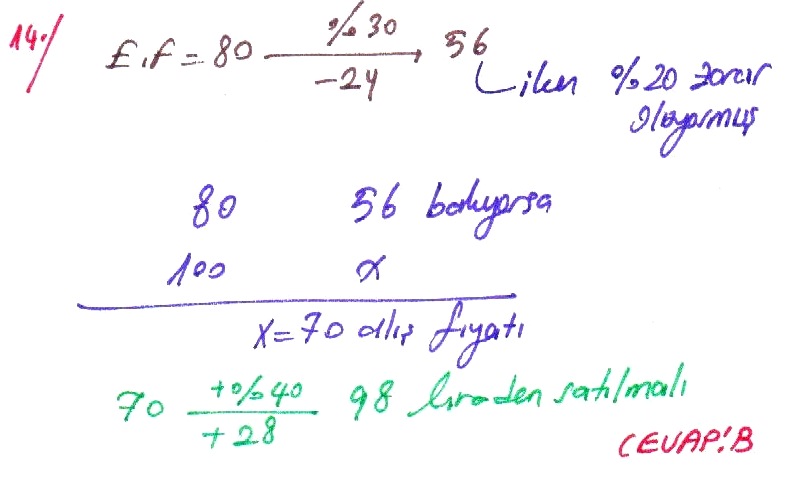 14-/ E.F = 80 %30 56
-24
iken %20 zarar
oluyormuş
80 56 bakıyorsa
100 x
x=70 alış fiyatı
70 +%40 98 liradan satılmalı
+28
CEVAP:B